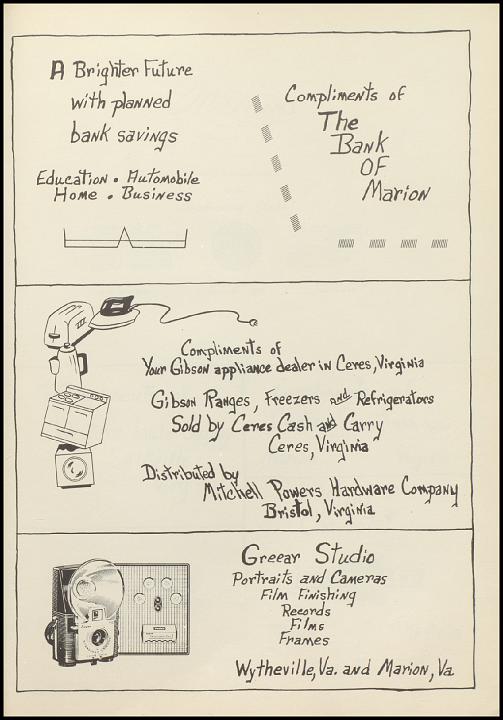 A Brighter Future
with planned
bank savings
Education . Automobile
Home . Business
Compliments of
The
Bank
OF
Marion
Compliments of
Your Gibson appliance dealer in Ceres, Virginia
Gibson Ranges, Freezers and Refrigerators
Sold by Ceres Cash and Carry
Ceres, Virginia
Distributed by
Mitchell Powers Hardware Company
Bristol, Virginia
Greear Studio
Portraits and Cameras
Film Finishing
Records
Films
Frames
Wytheville, Va. and Marion, Va.